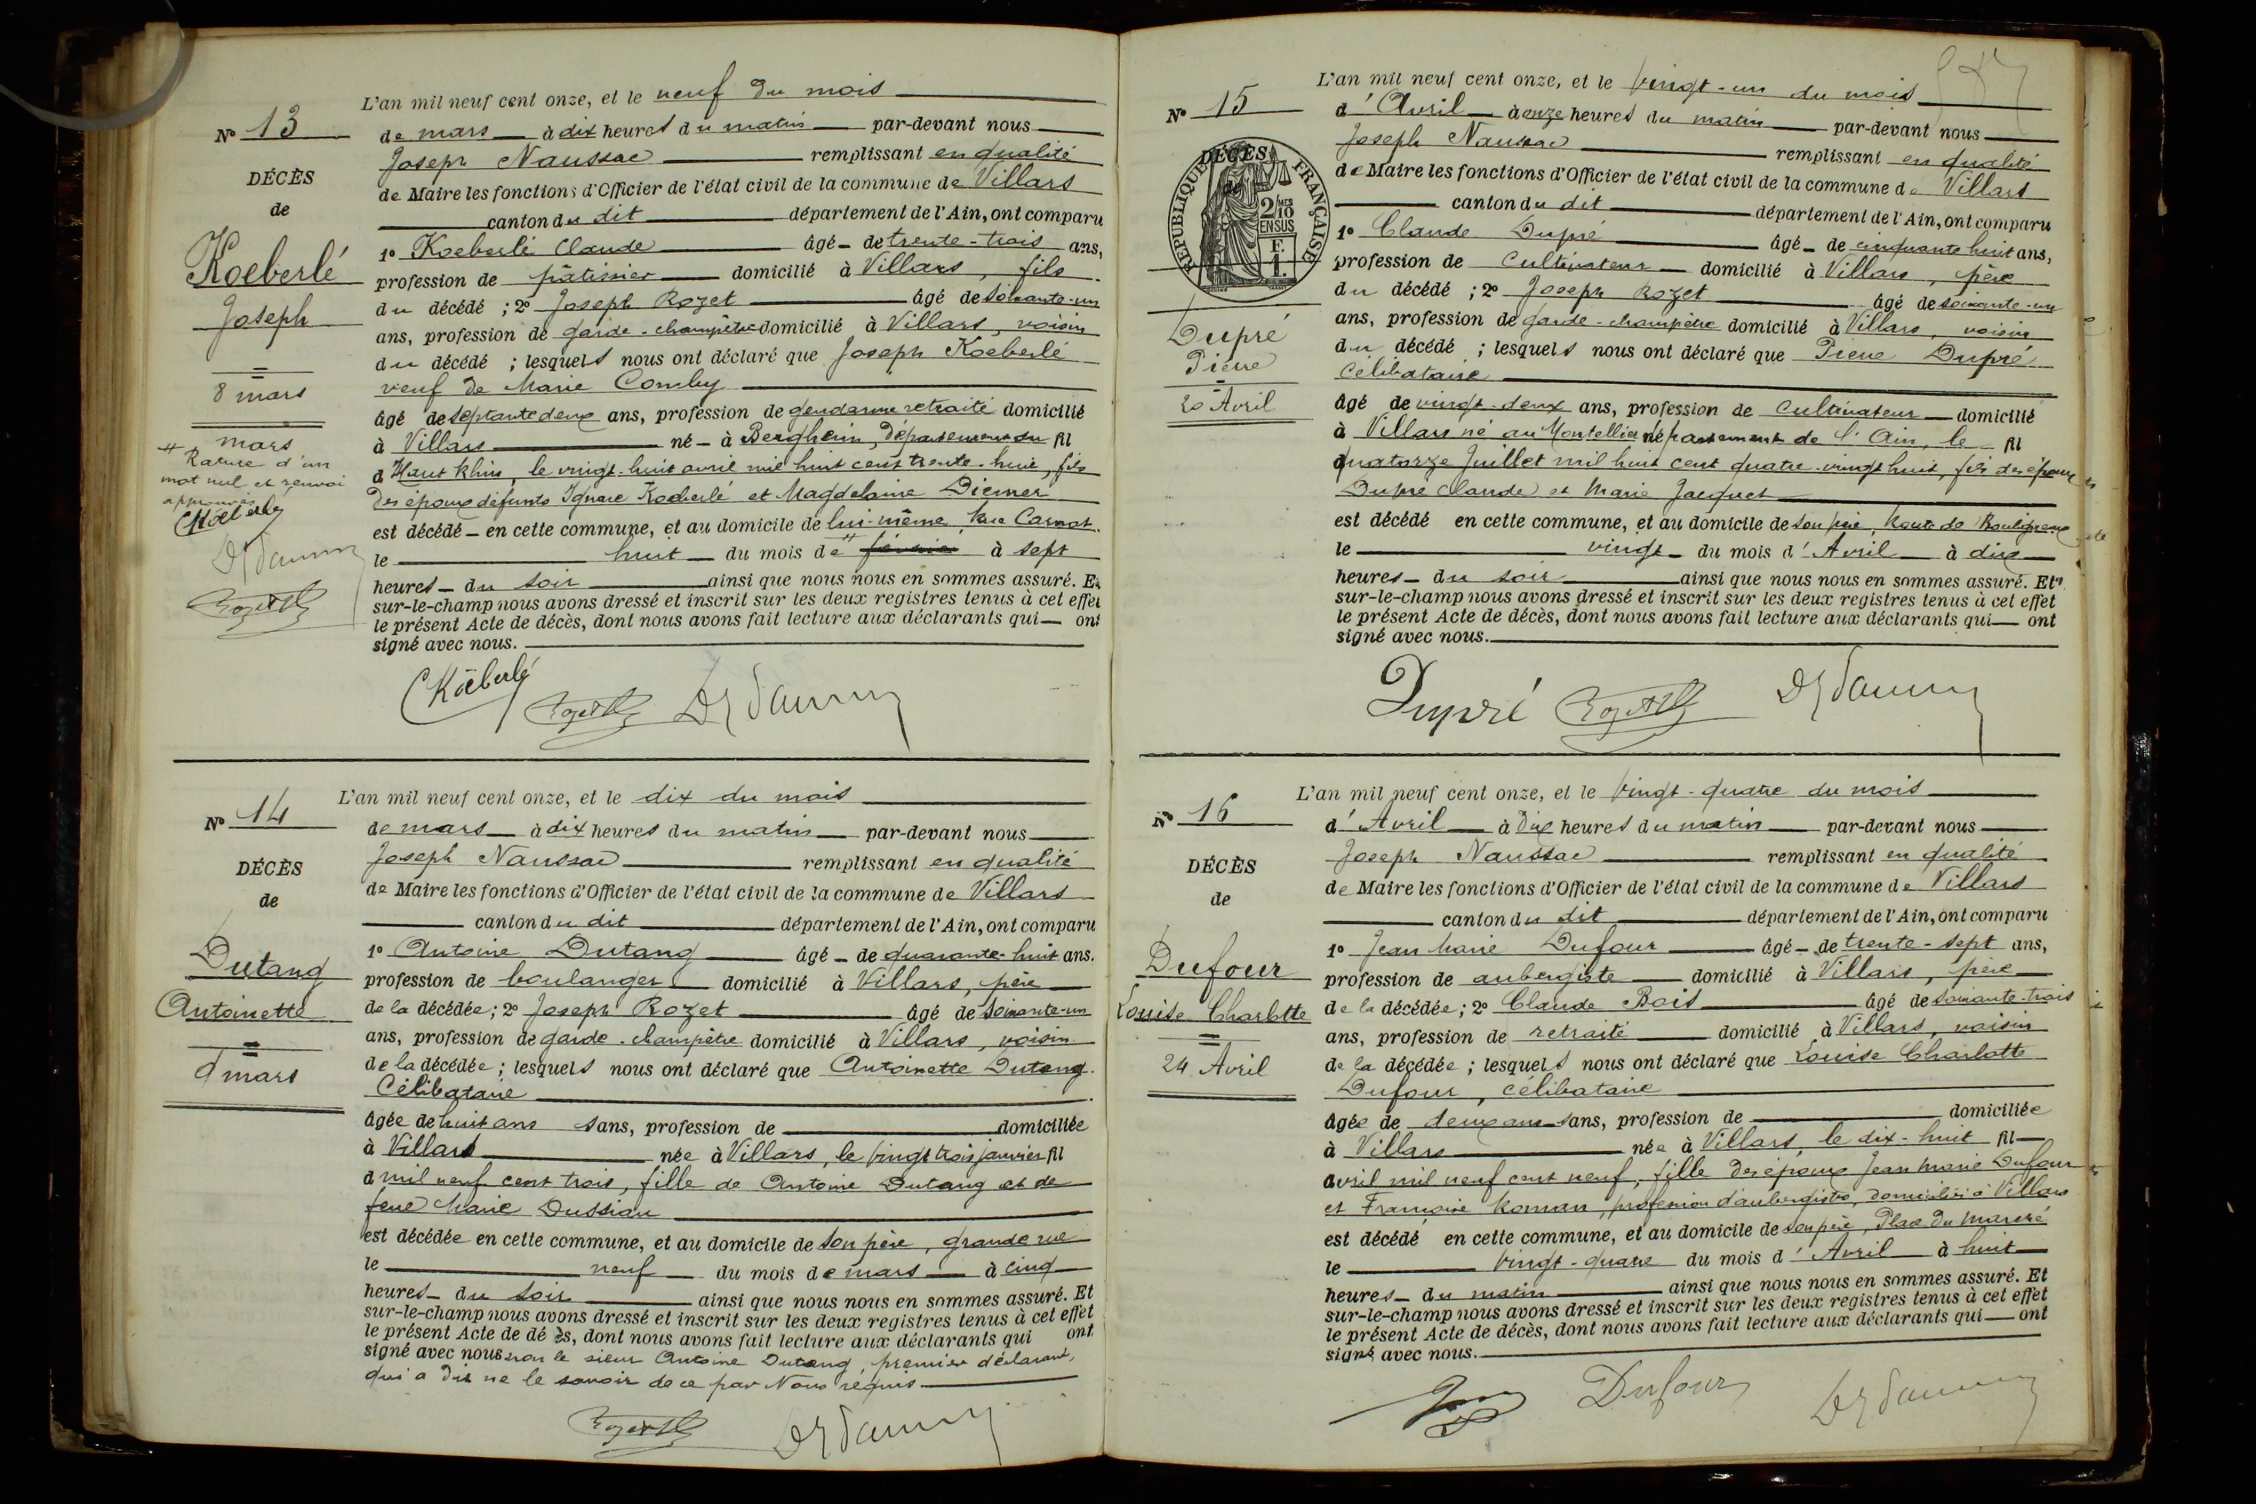 L'an mil neuf cent onze, et le neuf du mois
Nº 13
de mars à dix heures du matin par-devant nous
Joseph Naussac remplissant en qualité
DÉCÈS
de Maire les fonctions d'Officier de l'état civil de la commune de Villars
de
canton du dit département de l'Ain, ont comparu
Koeberlé
1º Koeberlé Claude âgé de trente-trois ans,
profession de pâtissier domicilié à Villars, fils
Joseph
du décédé ; 2º Joseph Rozet âgé de soixante-un
ans, profession de garde-champêtre domicilié à Villars, voisin
du décédé ; lesquels nous ont déclaré que Joseph Koeberlé
8 mars
veuf de Marie Comby
âgé de septante deux ans, profession de gendarme retraité domicilié
mars
à Villars né à Bergheim, département du fil
Rature d'un
mot nul et renvoi
approuvés
d Haut Rhin, le vingt-huit avril mil huit cent trente-huit, fils
des époux défunts Ignace Koeberlé et Magdelaine Diemer
CKoeberlé
est décédé en cette commune, et au domicile de lui-même, Rue Carnot
le huit du mois de février à sept
heures du soir ainsi que nous nous en sommes assuré. Et
sur-le-champ nous avons dressé et inscrit sur les deux registres tenus à cet effet
le présent Acte de décès, dont nous avons fait lecture aux déclarants qui ont
signé avec nous.
CKoeberlé
L'an mil neuf cent onze, et le dix du mois
Nº 14
de mars à dix heures du matin par-devant nous
Joseph Naussac remplissant en qualité
DÉCÈS
de Maire les fonctions d'Officier de l'état civil de la commune de Villars
de
canton du dit département de l'Ain, ont comparu
Dutang
1º Antoine Dutang âgé de quarante-huit ans.
profession de boulanger domicilié à Villars, père
Antoinette
de la décédée ; 2º Joseph Rozet âgé de soixante-un
ans, profession de garde-champêtre domicilié à Villars, voisin
9 mars
de la décédée ; lesquels nous ont déclaré que Antoinette Dutang
Célibataire
âgée de huit ans sans, profession de domiciliée
à Villars née à Villars, le vingt trois janvier fil
d mil neuf cent trois, fille de Antoine Dutang et de
feue Marie Dussiau
est décédée en cette commune, et au domicile de son père, grande rue
le neuf du mois de mars à cinq
heures du soir ainsi que nous nous en sommes assuré. Et
sur-le-champ nous avons dressé et inscrit sur les deux registres tenus à cet effet
le présent Acte de décès, dont nous avons fait lecture aux déclarants qui ont
signé avec nous non le sieur Antoine Dutang, premier déclarant,
qui a dit ne le savoir de ce par Nous requis
L'an mil neuf cent onze, et le vingt-un du mois
Nº 15
d'Avril à onze heures du matin par-devant nous
Joseph Naussac remplissant en qualité
DÉCÈS
de
RÉPUBLIQUE FRANÇAISE
2/10 MES EN SUS
F. 1.
de Maire les fonctions d'Officier de l'état civil de la commune de Villars
canton du dit département de l'Ain, ont comparu
1º Claude Dupré âgé de cinquante huit ans,
profession de cultivateur domicilié à Villars, père
du décédé ; 2º Joseph Rozet âgé de soixante-un
Dupré
ans, profession de garde-champêtre domicilié à Villars, voisin
Pierre
du décédé ; lesquels nous ont déclaré que Pierre Dupré
célibataire
20 Avril
âgé de vingt-deux ans, profession de cultivateur domicilié
à Villars né au Montellier département de l'Ain, le fil
quatorze Juillet mil huit cent quatre-vingt huit, fils des époux
Dupré Claude et Marie Jacquet
est décédé en cette commune, et au domicile de son père, Route de Bouligneux
le vingt du mois d'Avril à dix
heures du soir ainsi que nous nous en sommes assuré. Et
sur-le-champ nous avons dressé et inscrit sur les deux registres tenus à cet effet
le présent Acte de décès, dont nous avons fait lecture aux déclarants qui ont
signé avec nous.
Dupré
L'an mil neuf cent onze, et le vingt-quatre du mois
Nº 16
d'Avril à Dix heures du matin par-devant nous
Joseph Naussac remplissant en qualité
DÉCÈS
de Maire les fonctions d'Officier de l'état civil de la commune de Villars
de
canton du dit département de l'Ain, ont comparu
Dufour
1º Jean Marie Dufour âgé de trente-sept ans,
profession de aubergiste domicilié à Villars, père
Louise Charlotte
de la décédée ; 2º Claude Bois âgé de soixante-trois
ans, profession de retraité domicilié à Villars, voisin
24 Avril
de la décédée ; lesquels nous ont déclaré que Louise Charlotte
Dufour, célibataire
âgée de deux ans sans, profession de domiciliée
à Villars née à Villars, le dix-huit fil
avril mil neuf cent neuf, fille des époux Jean Marie Dufour
et Françoise Roman, profession d'aubergiste, domiciliés à Villars
est décédé en cette commune, et au domicile de son père, Place du Marché
le vingt-quatre du mois d'Avril à huit
heures du matin ainsi que nous nous en sommes assuré. Et
sur-le-champ nous avons dressé et inscrit sur les deux registres tenus à cet effet
le présent Acte de décès, dont nous avons fait lecture aux déclarants qui ont
signé avec nous.
Dufour